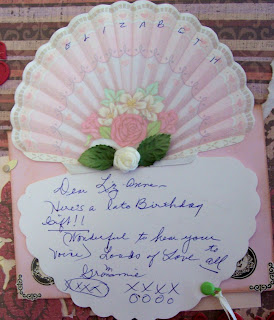 ELIZABETH
Dear Liz-Anne
Here's a late Birthday
Gift!!
Wonderful to hear your
Voice! Loads of Love to all
Grammie
XXXX XXXX
OOOO